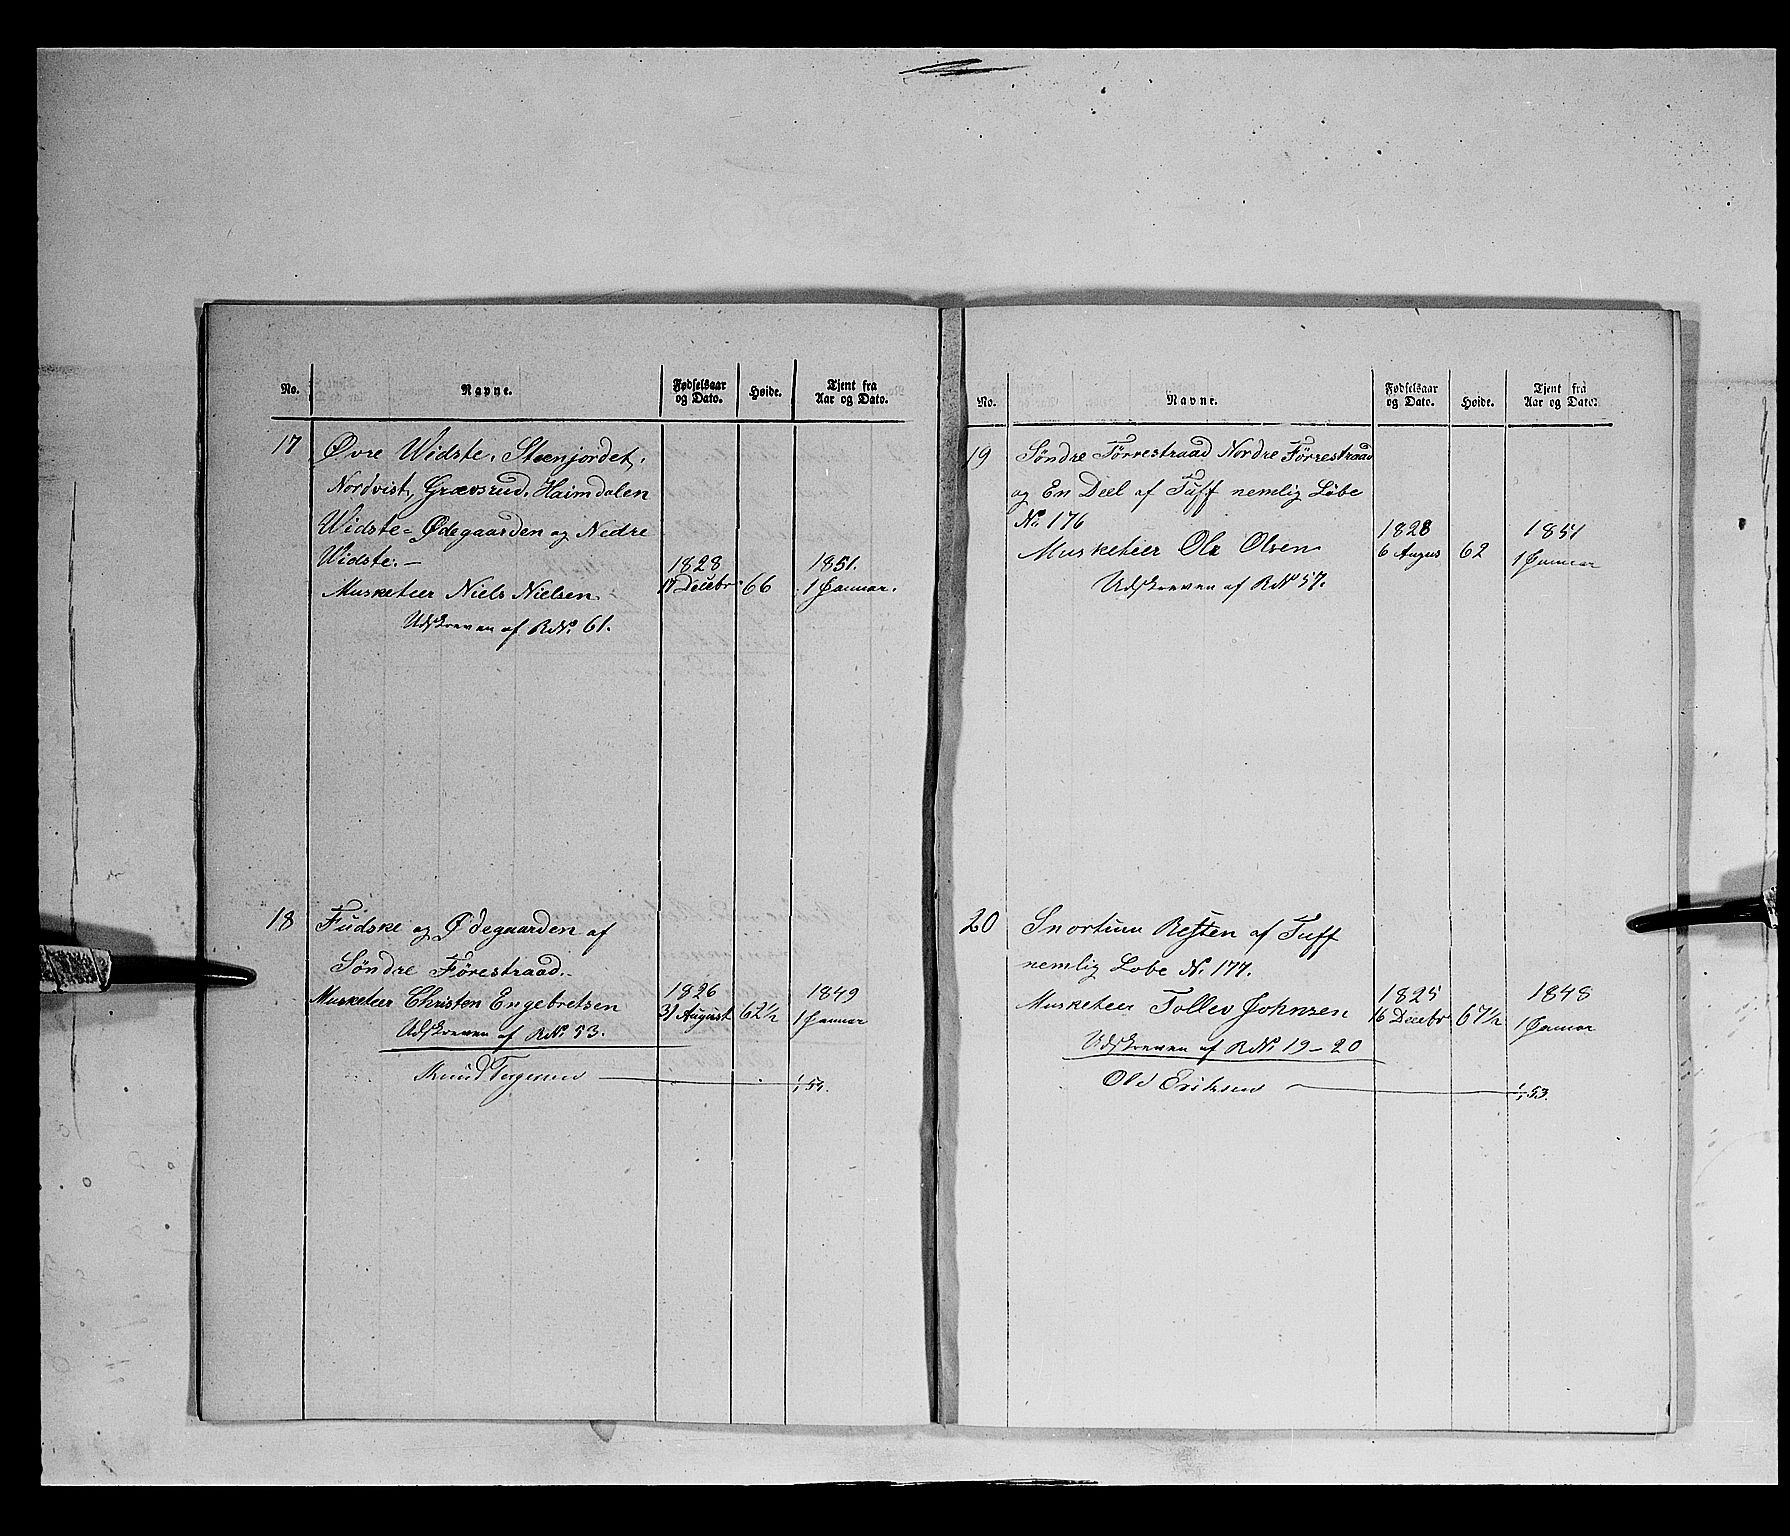 No. Navne. Fødselsaar og Dato. Høide. Tjent fra Aar og Dato.
17 Øvre Widste, Steenjordet,
Nordvist, Grævsrud, Haimdalen
Widste-Ødegaarden og Nedre
Widste.- 1828 1851.
Musketeer Niels Nielsen 17 Decebr 66 1 Januar.
Udskreven af RNº 61.
18 Fudske og Ødegaarden af
Søndre Førestraad.
Musketeer Christen Engebretsen 1826 31 August 62½ 1849 1 Januar
Udskreven af RNº 53.
Knud Torgersen
No. Navne. Fødselsaar og Dato. Høide. Tjent fra Aar og Dato.
19 Søndre Førrestraad Nordre Førrestraad
og En Deel af Tuff nemlig Løbe
Nº 176
Musketeer Ole Olsen 1828 6 Augus 62 1851 1 Januar
Udskreven af RNº 57.
20 Snortum Resten af Tuff
nemlig Lobe Nº 177.
Musketeer Tollev Johnsen 1825 16 Decebr 67½ 1848 1 Januar
Udskreven af RNº 19-20
Ole Eriksen 1/1 53.